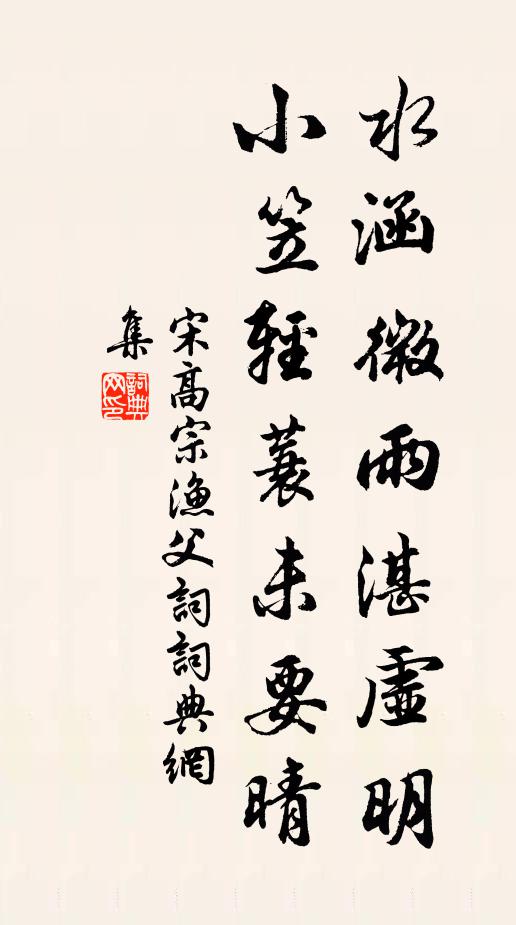 水涵微雨湛虛明
小笠輕蓑未要晴
宋高宗漁父詞詞典網
集
詞典網印